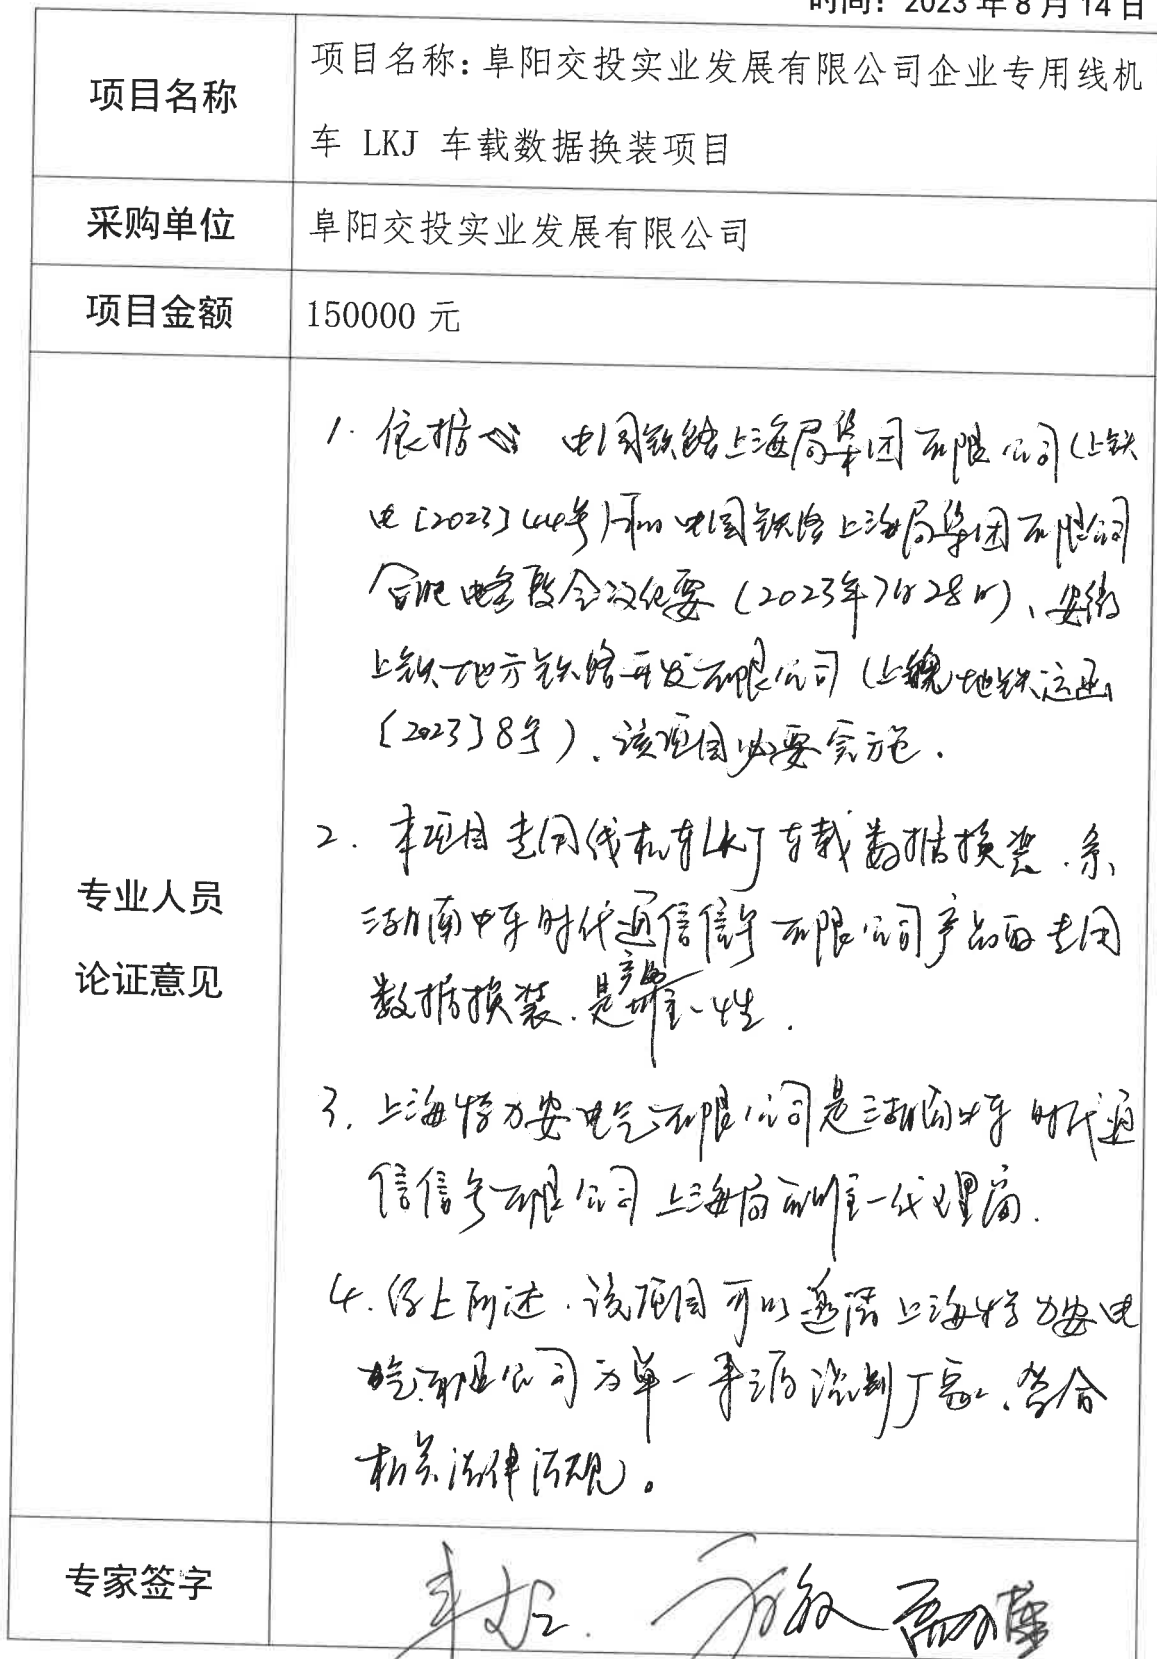 时间：2023年8月14日
项目名称
项目名称：阜阳交投实业发展有限公司企业专用线机
车 LKJ 车载数据换装项目
采购单位
阜阳交投实业发展有限公司
项目金额
150000 元
专业人员
论证意见
1. 依据 中国铁路上海局集团有限公司（上铁
电〔2023〕44号）和中国铁路上海局集团有限公司
合肥电务段会议纪要（2023年7月28日）、安徽
上铁地方铁路开发有限公司（上铁地铁运函
〔2023〕8号），该项目必要实施。
2. 本项目专用线机车LKJ车载数据换装，系
湖南中车时代通信信号有限公司产品的专用
数据换装，是唯一性。
3. 上海特力安电气有限公司是湖南中车时代通
信信号有限公司上海局的唯一代理商。
4. 综上所述，该项目可以邀请上海特力安电
气有限公司为单一来源谈判厂家，符合
相关法律法规。
专家签字